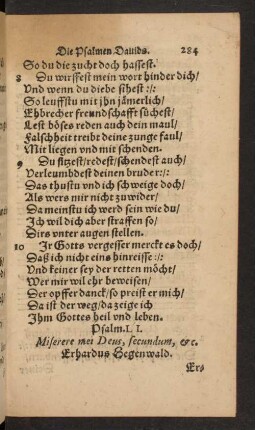 Die Psalmen Dauids. 284
So du die zucht doch hassest.
8 Du wirffest mein wort hinder dich/
Vnd wenn du diebe sihest :/:
So leuffstu mit jhn jämerlich/
Ehbrecher freundschafft süchest/
Lest böses reden auch dein maul/
Falscheit treibt deine zunge faul/
Mit liegen vnd mit schenden.
9 Du sitzest/redest/schendest auch/
Verleumbdest deinen bruder:/:
Das thustu vnd ich schweige doch/
Als wers mir nicht zuwider/
Da meinstu ich werd sein wie du/
Ich wil dich aber straffen so/
Dirs vnter augen stellen.
10 Jr Gotts vergesser merckt es doch/
Daß ich nicht eins hinreisse:/:
Vnd keiner sey der retten möcht/
Wer mir wil ehr beweisen/
Der opffer danck/so preist er mich/
Da ist der weg/da zeige ich
Jhm Gottes heil vnd leben.
Psalm.L I.
Miserere mei Deus, secundum, &c.
Erhardus Hegenwald.
Er-